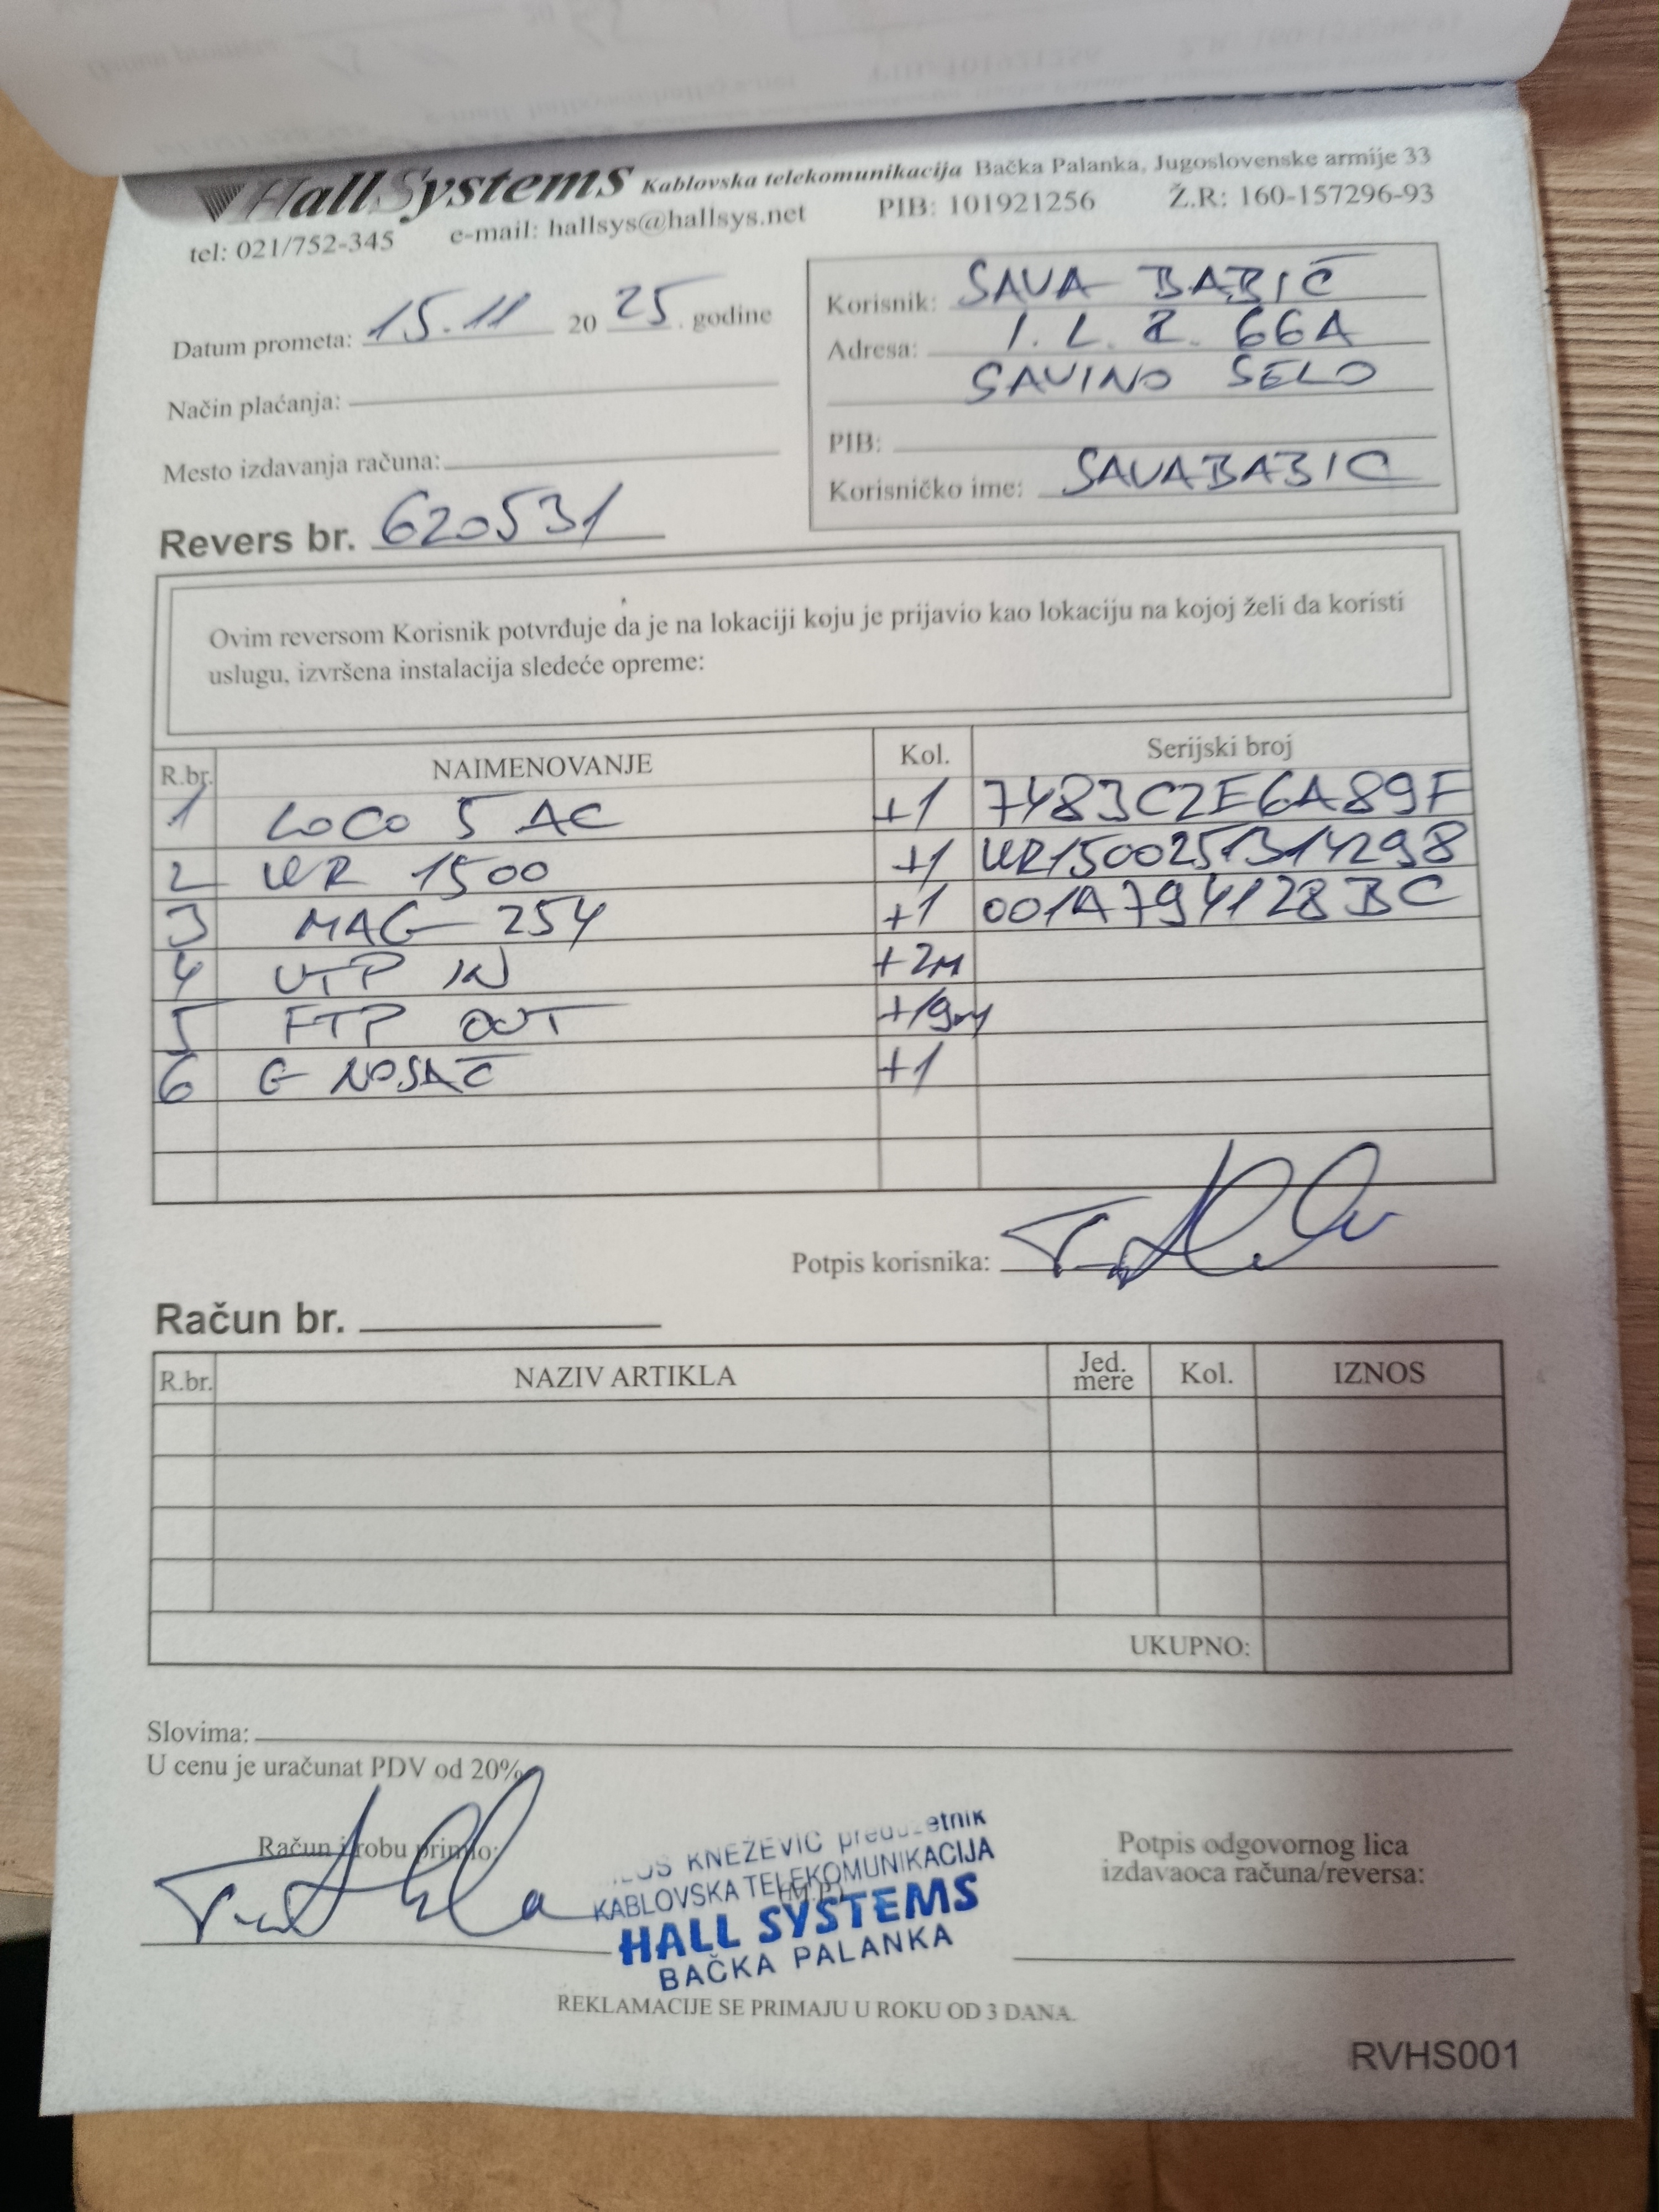 HallSystems Kablovska telekomunikacija Bačka Palanka, Jugoslovenske armije 33
tel: 021/752-345 e-mail: hallsys@hallsys.net PIB: 101921256 Ž.R: 160-157296-93
Datum prometa: 15.11 20 25. godine
Način plaćanja:
Mesto izdavanja računa:
Revers br. 620531
Korisnik: SAVA BABIĆ
Adresa: I. L. R. 66A
SAVINO SELO
PIB:
Korisničko ime: SAVABABIC
Ovim reversom Korisnik potvrđuje da je na lokaciji koju je prijavio kao lokaciju na kojoj želi da koristi
uslugu, izvršena instalacija sledeće opreme:
R.br. NAIMENOVANJE Kol. Serijski broj
1 LOCO 5 AC +1 7483C2E6A89F
2 WR 1500 +1 WR1500251314298
3 MAG 254 +1 001A794128BC
4 UTP IN +2M
5 FTP OUT +19m
6 G NOSAČ +1
Potpis korisnika:
Račun br.
R.br. NAZIV ARTIKLA Jed. mere Kol. IZNOS
UKUPNO:
Slovima:
U cenu je uračunat PDV od 20%
Račun i robu primio:
KNEŽEVIĆ preduzetnik
KABLOVSKA TELEKOMUNIKACIJA
(M.P.)
HALL SYSTEMS
BAČKA PALANKA
Potpis odgovornog lica
izdavaoca računa/reversa:
REKLAMACIJE SE PRIMAJU U ROKU OD 3 DANA.
RVHS001